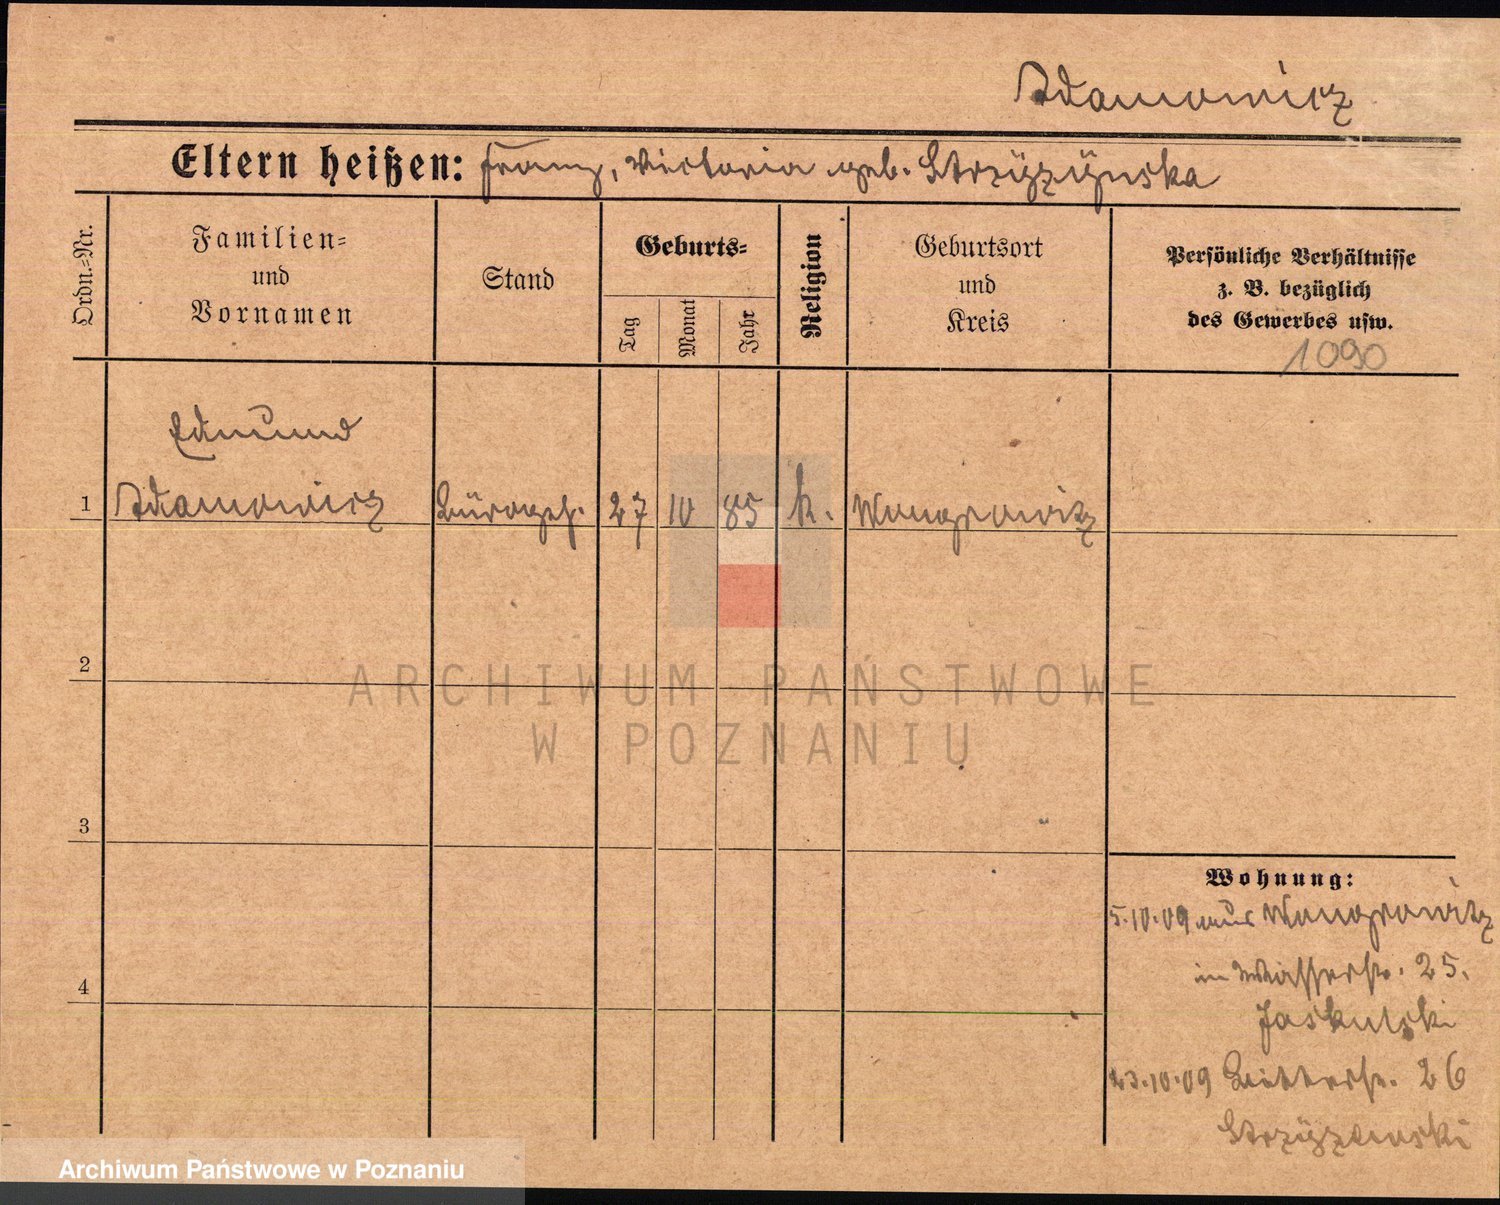 Adamowicz
Eltern heißen: Franz, Victoria geb. Strzyzynska
Ordn.=Nr.
Familien=
und
Vornamen
Stand
Geburts=
Tag
Monat
Jahr
Religion
Geburtsort
und
Kreis
Persönliche Verhältnisse
z. B. bezüglich
des Gewerbes usw.
1090
Edmund
1 Adamowicz Bürogeh. 27 10 85 k. Wongrowitz
2
3
4
Wohnung:
5.10.09 aus Wongrowitz
in Wasserstr. 25.
Jaskulski
23.10.09 Ritterstr. 26
Strzyzewski
ARCHIWUM PAŃSTWOWE
W POZNANIU
Archiwum Państwowe w Poznaniu